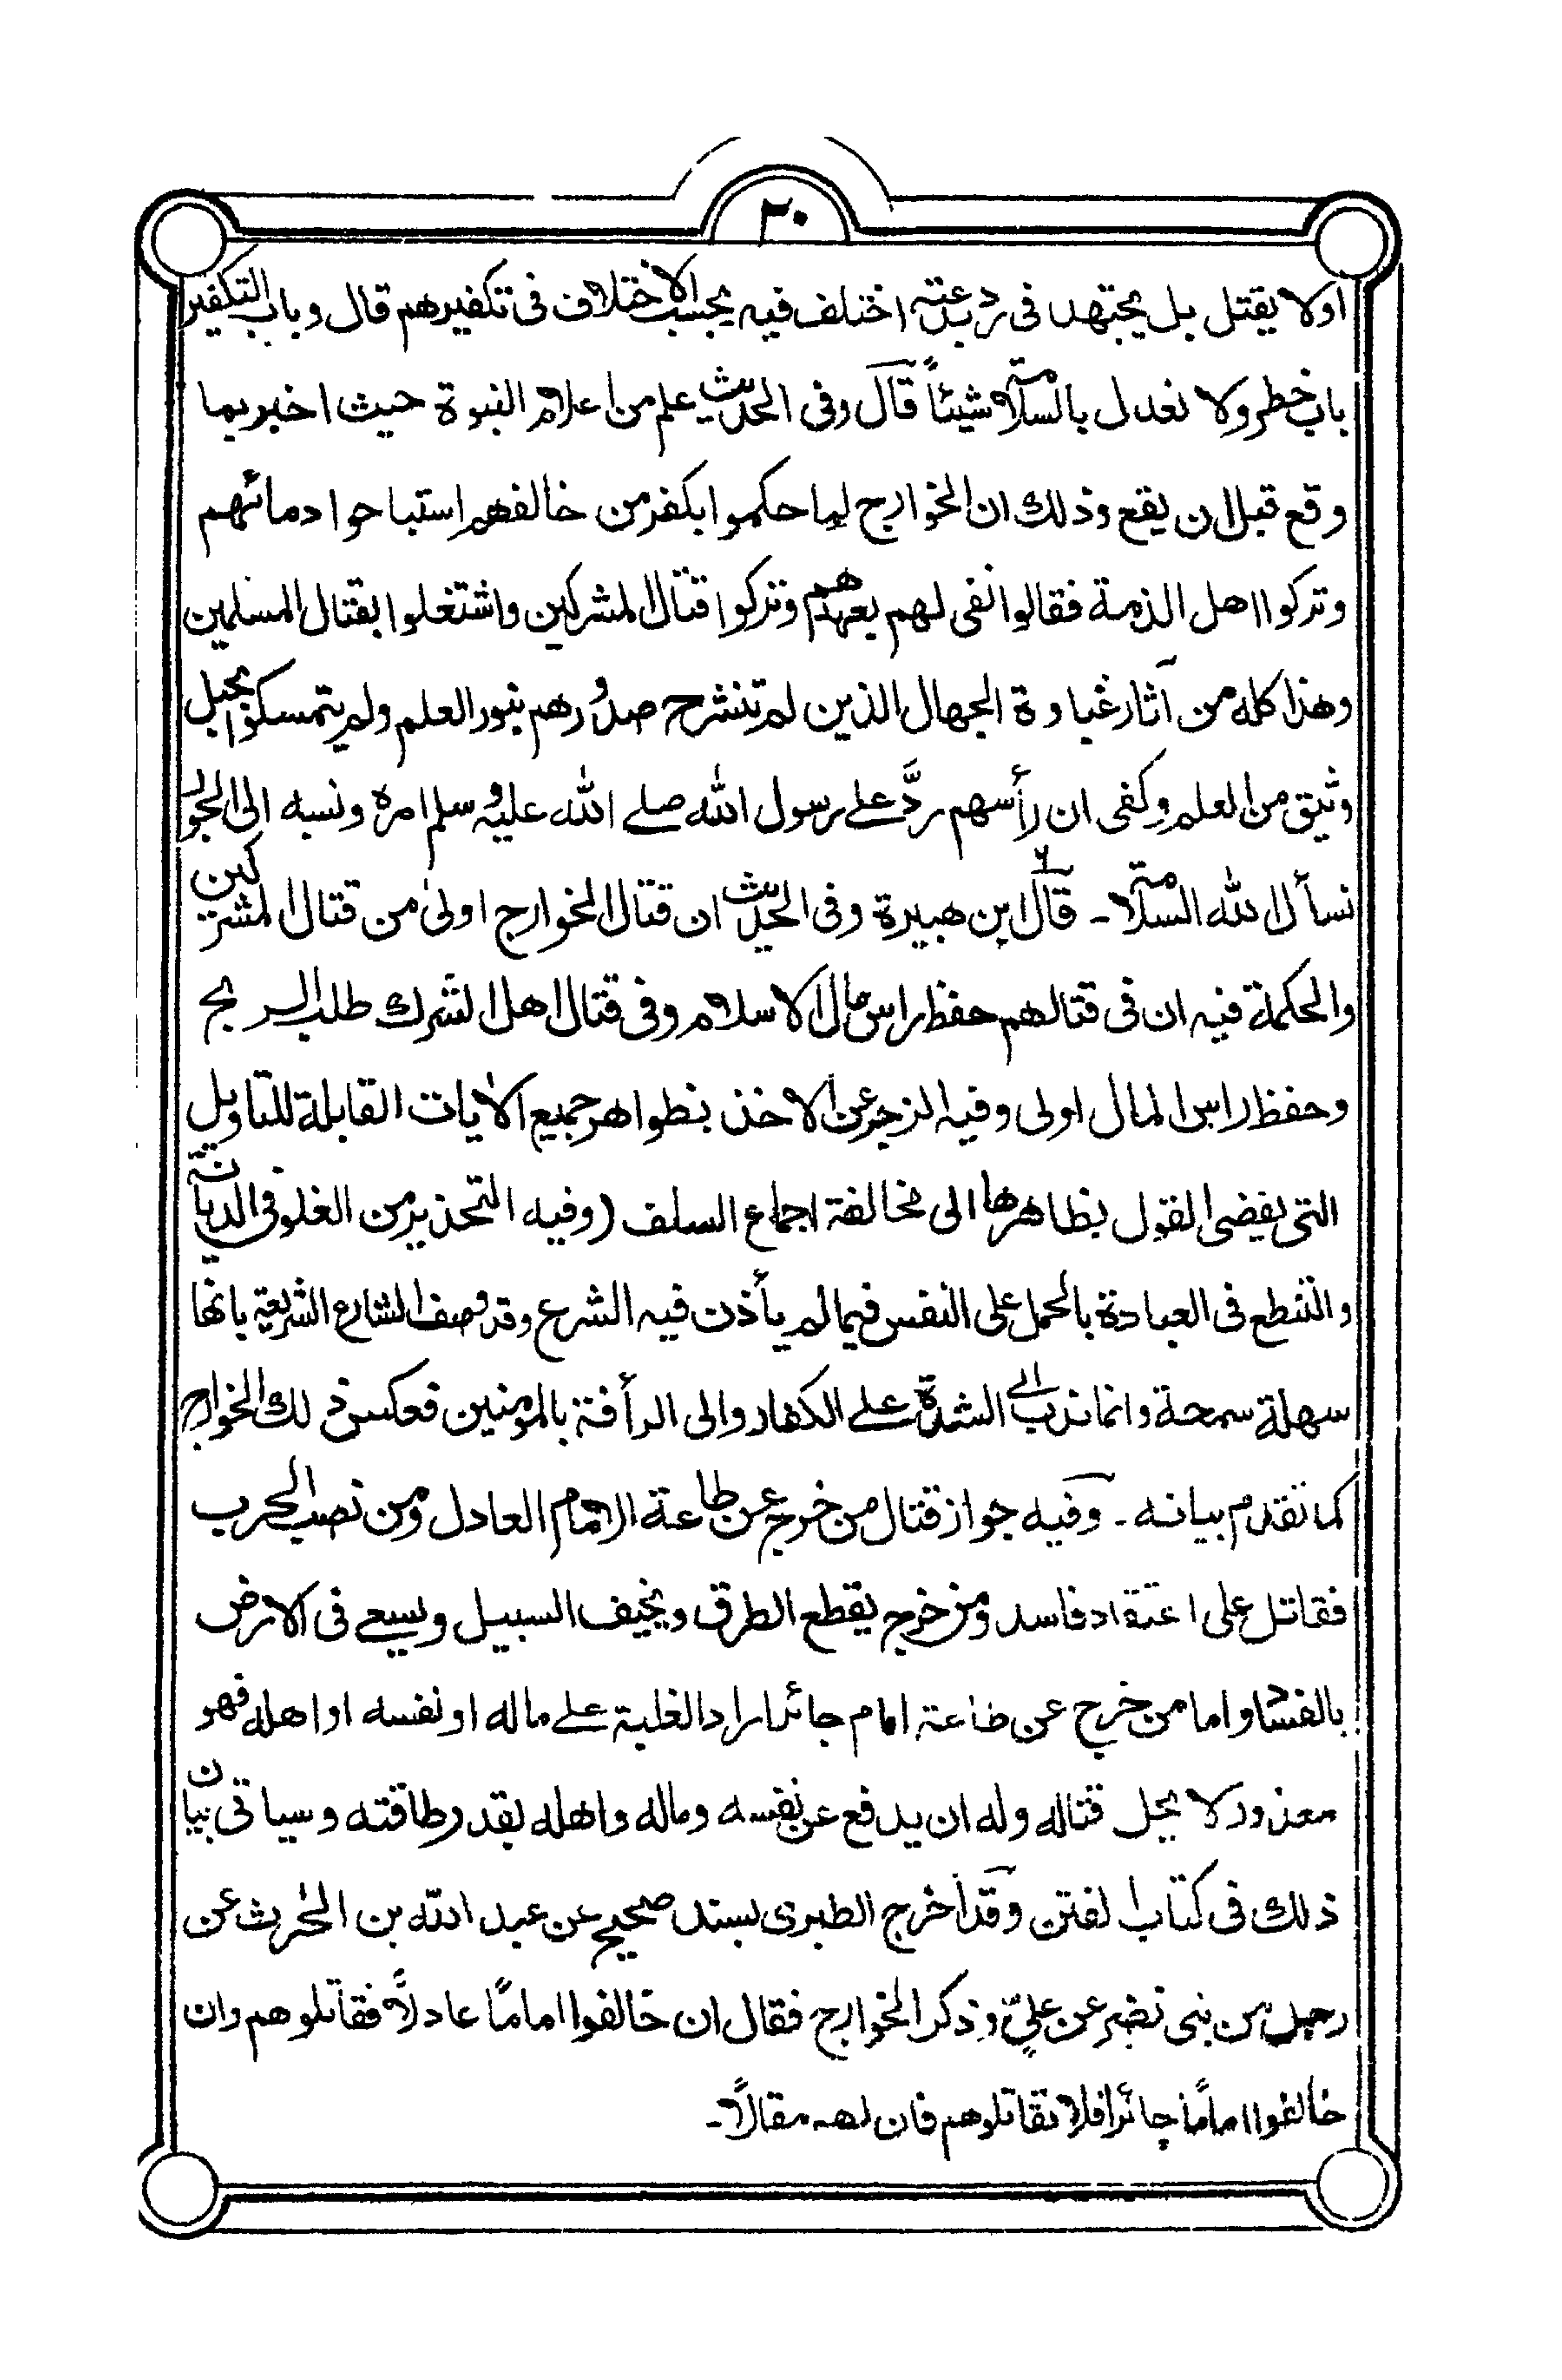 ٣٠
اولا يقتل بل يجتهد فى رد بدعته اختلف فيه بحسب الاختلاف فى تكفيرهم قال وباب التكفير
باب خطر ولا نعدل بالسلامة شيئاً قال وفى الحديث علم من اعلام النبوة حيث اخبر بما
وقع قبل ان يقع وذلك ان الخوارج لما حكموا بكفر من خالفهم استباحوا دمائهم
وتركوا اهل الذمة فقالوا نفى لهم بعهدهم وتركوا قتال المشركين واشتغلوا بقتال المسلمين
وهذا كله من آثار غباوة الجهال الذين لم تنشرح صدورهم بنور العلم ولم يتمسكوا بحبل
وثيق من العلم وكفى ان رأسهم ردَّ على رسول الله صلے الله عليه وسلم امره ونسبه الى الجور
نسأل الله السلامة ـ قال ابن هبيرة وفى الحديث ان قتال الخوارج اولىٰ من قتال المشركين
والحكمة فيه ان فى قتالهم حفظ راس مال الاسلام وفى قتال اهل الشرك طلب الربح
وحفظ راس المال اولى وفيه الزجر عن الاخذ بظواهر جميع الاٰيات القابلة للتاويل
التى يفضى القول بظاهرها الى مخالفة اجماع السلف (وفيه التحذير من الغلو فى الديانة
والتنطع فى العبادة بالحمل على النفس فيما لم يأذن فيه الشرع وقد وصف الشارع الشريعة بانها
سهلة سمحة وانما ندب الے الشدة علے الكفار والى الرأفة بالمؤمنين فعكس ذلك الخوارج
كما تقدم بيانه ـ وفيه جواز قتال من خرج عن طاعة الامام العادل ومن نصب الحرب
فقاتل على اعتقاد فاسد ومن خرج يقطع الطرق ويخيف السبيل ويسعے فى الارض
بالفساد واما من خرج عن طاعة امام جائر اراد الغلبة علے ماله او نفسه او اهله فهو
معذور لا يحل قتاله وله ان يدفع عن نفسه وماله واهله بقدر طاقته وسياتى بيان
ذلك فى كتاب الفتن وقد أخرج الطبرى بسند صحيح عن عبد الله بن الحٰرث عن
رجل من بنى نضر عن عليّ وذكر الخوارج فقال ان خالفوا اماماً عادلاً فقاتلوهم وان
خالفوا اماماً جائرا فلا تقاتلوهم فان لهم مقالاً ـ